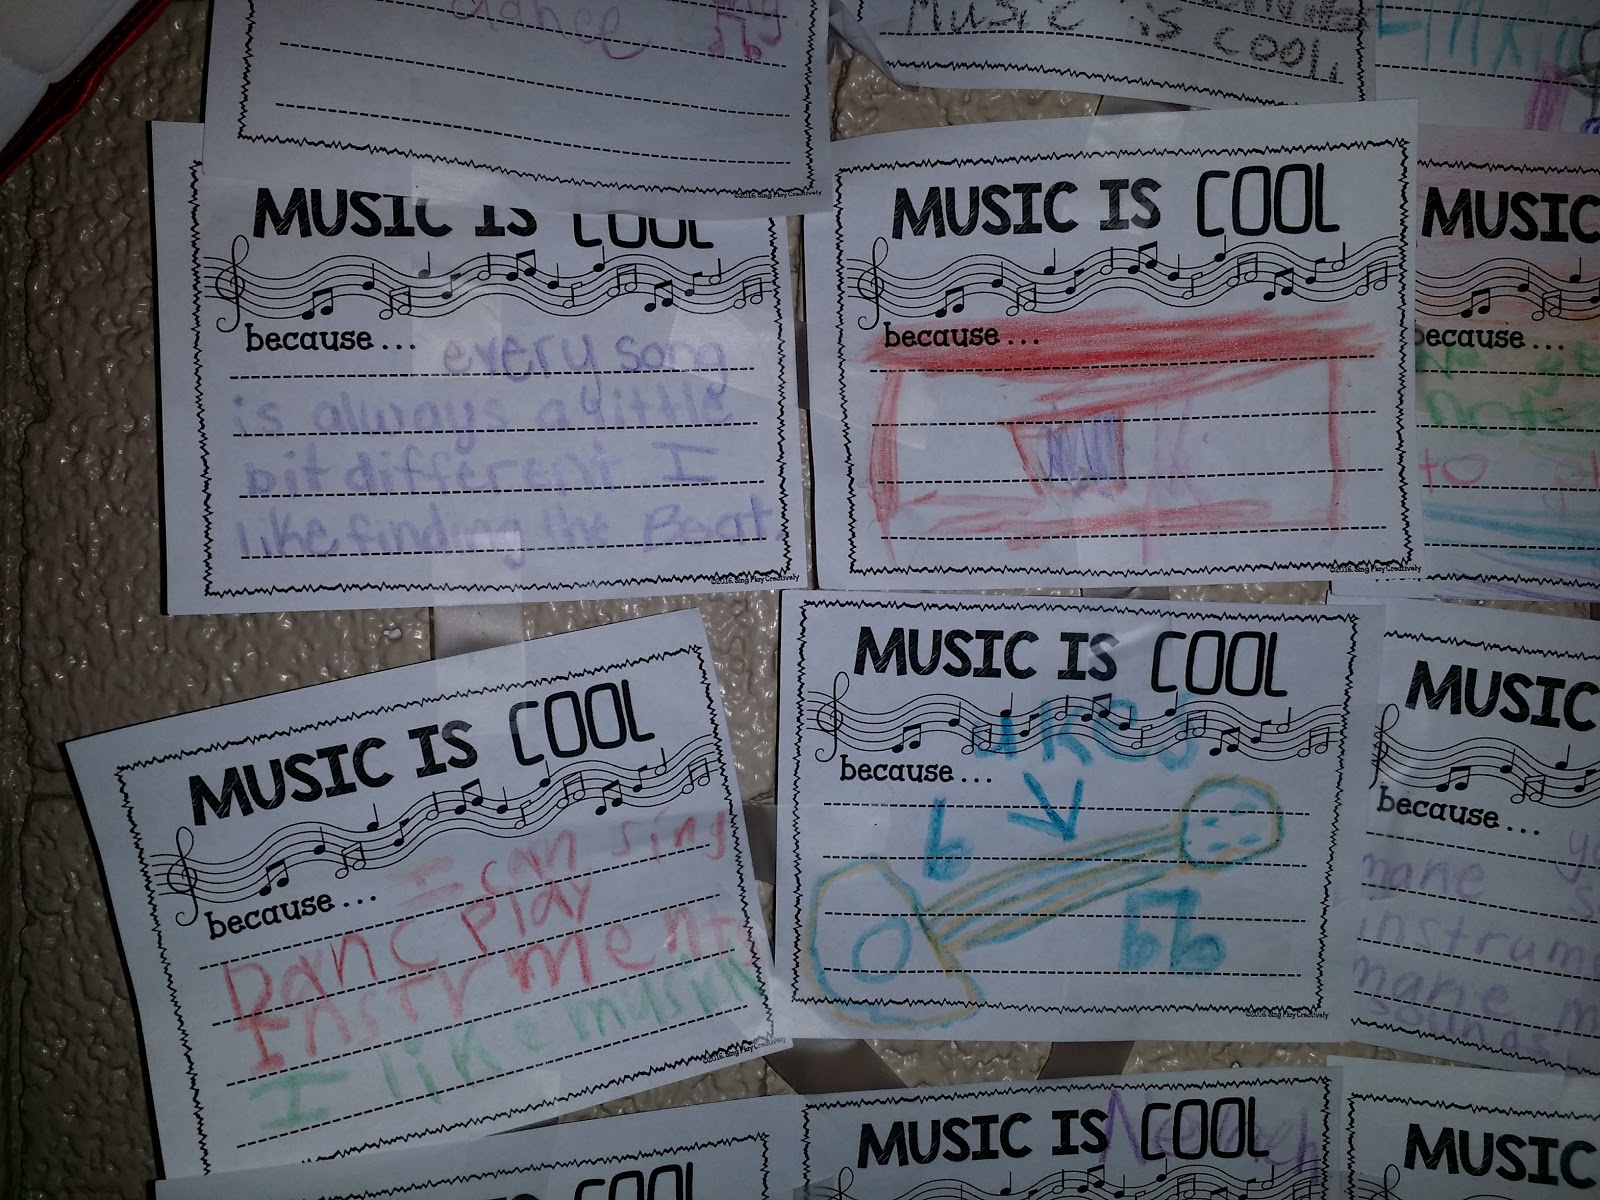 dance
©2016. Sing Play Creatively
Music is COOL
MUSIC IS COOL
because...
every song
is always a little
bit different. I
like finding the Beat.
©2016. Sing Play Creatively
MUSIC IS COOL
because...
©2016. Sing Play Creatively
MUSIC
because...
to
MUSIC IS COOL
because...
I can sing
Danc play
Instrments
I like musik
©2016. Sing Play Creatively
MUSIC IS COOL
because...
©2016. Sing Play Creatively
MUSIC
because...
mane
instrum
mane m
sounds
MUSIC IS COOL
MUSIC
COOL